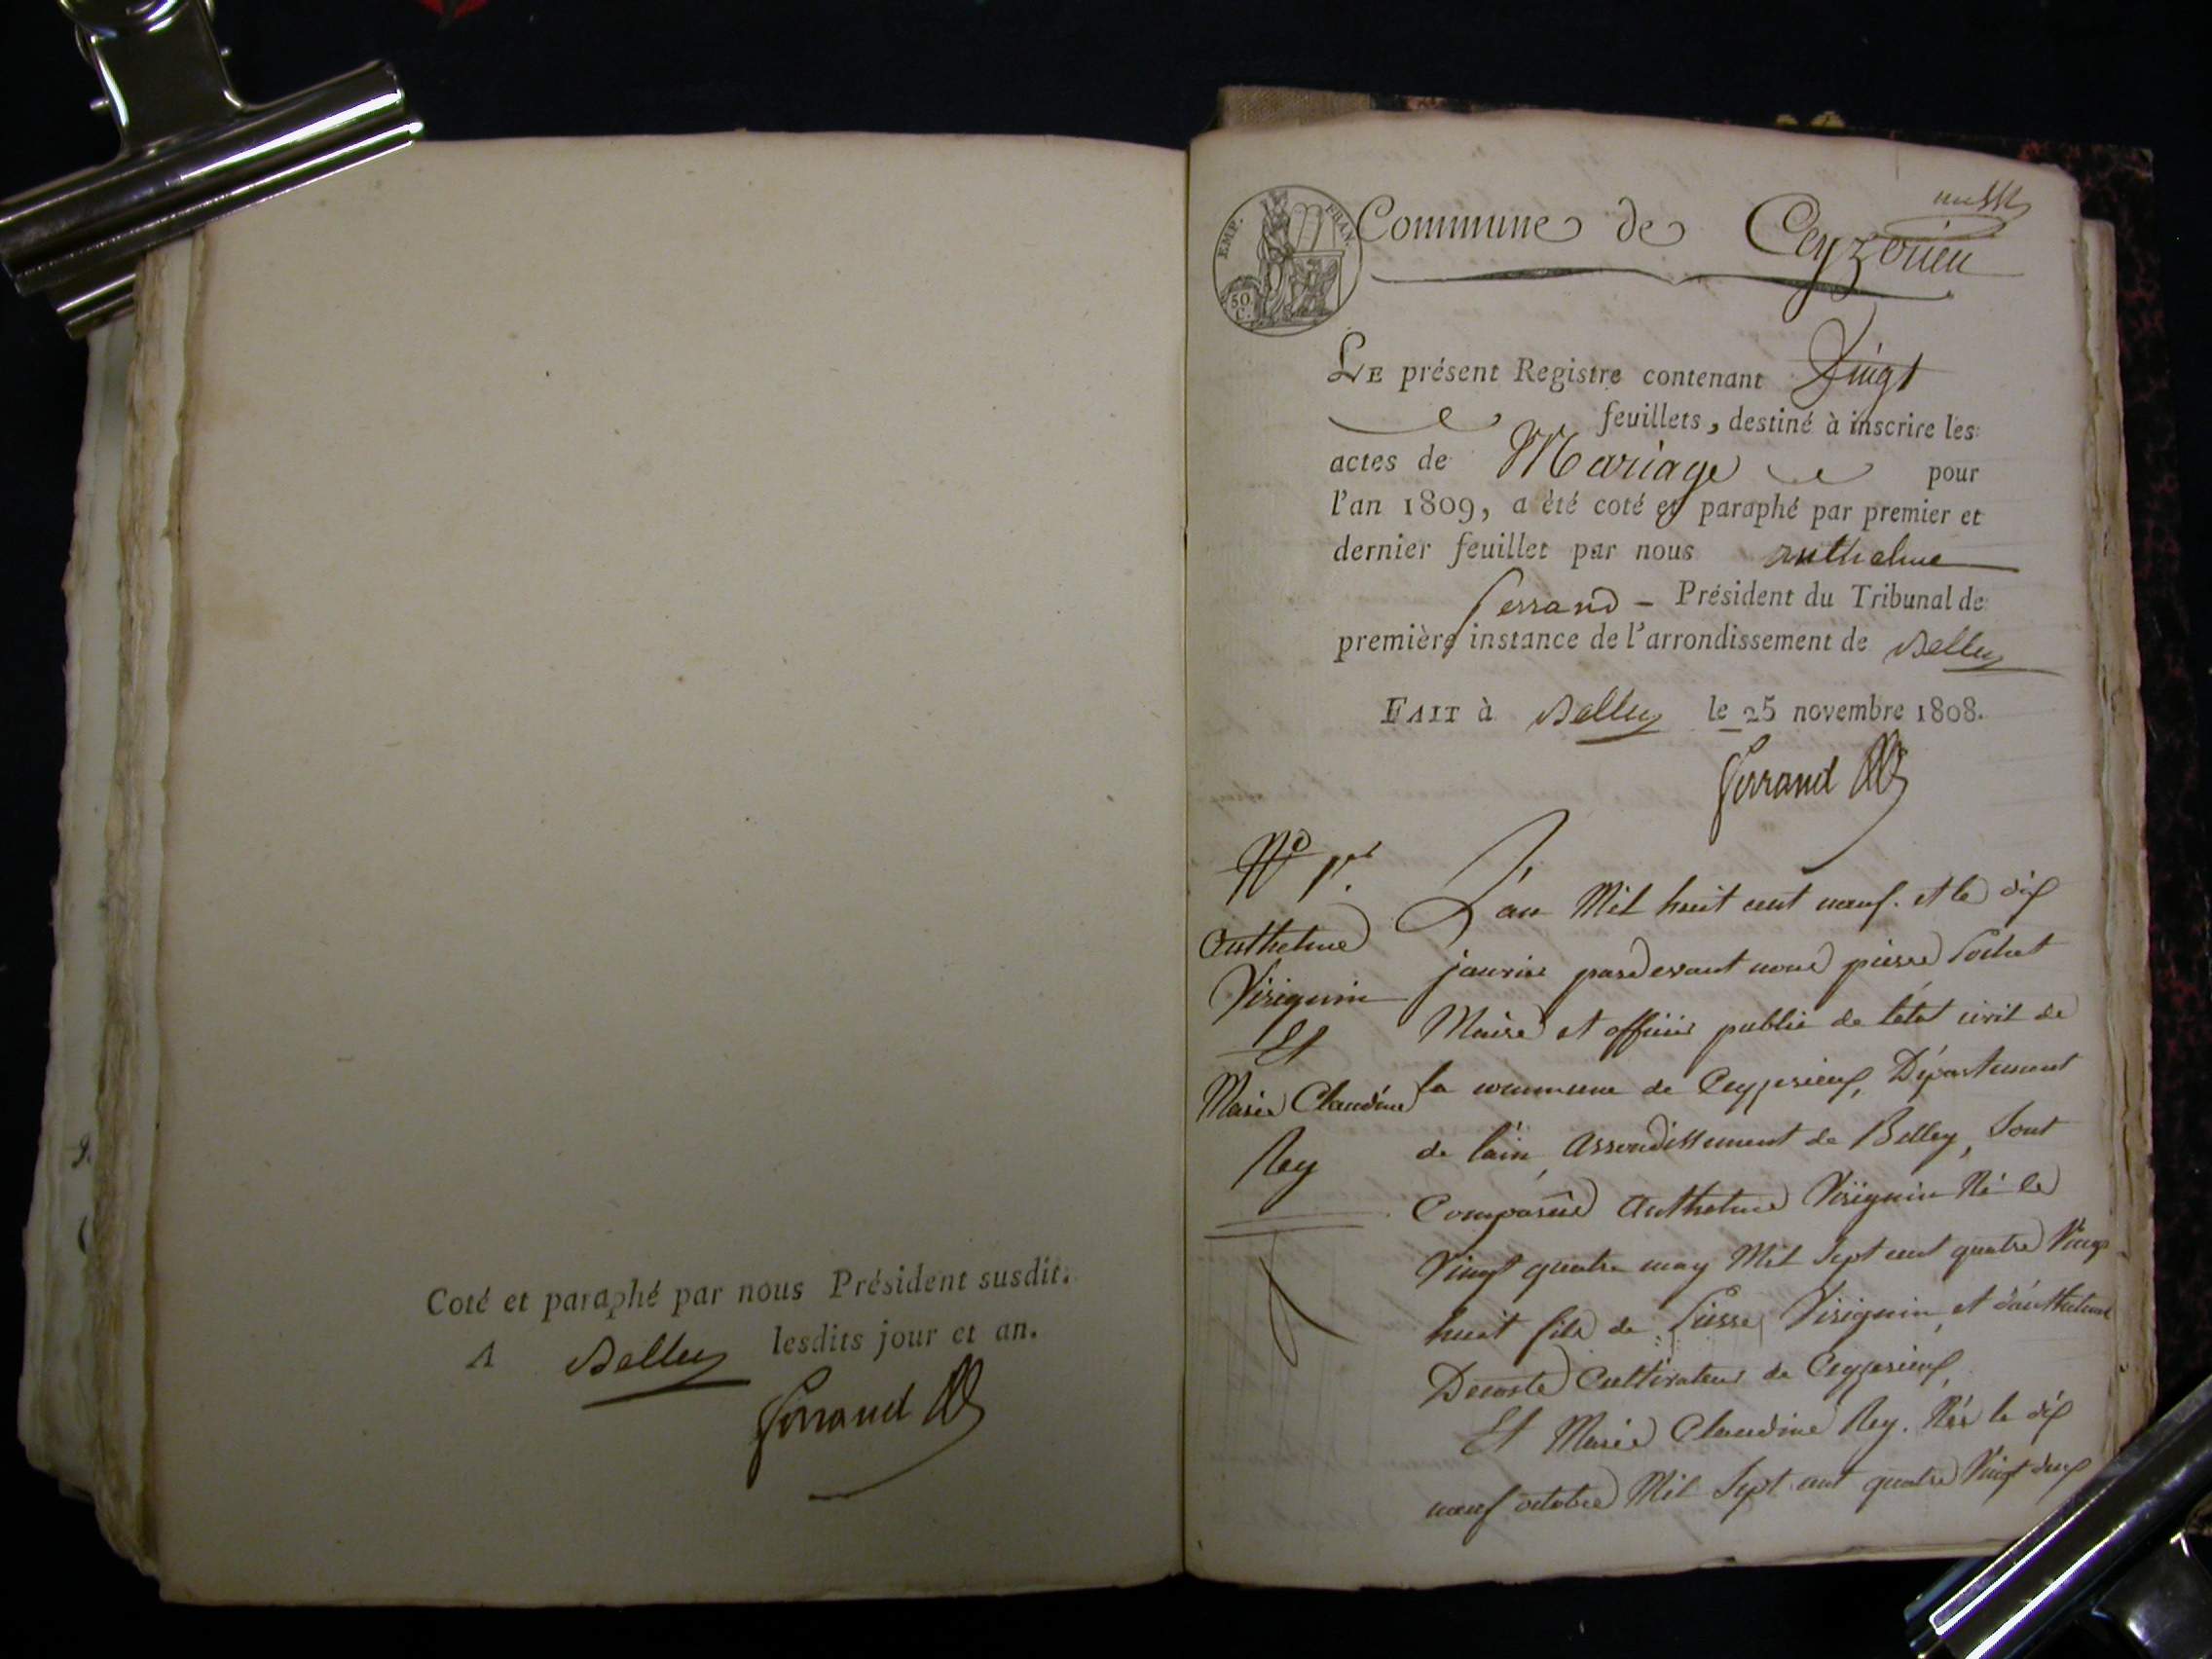 Coté et paraphé par nous Président susdit.
A Belley lesdits jour et an.
Ferrand
EMP. FRAN.
50 C.
Commune de Ceyzerieu
LE présent Registre contenant Vingt
feuillets, destiné à inscrire les
actes de Mariage pour
l'an 1809, a été coté et paraphé par premier et
dernier feuillet par nous anthelme
ferrand - Président du Tribunal de
première instance de l'arrondissement de Belley
FAIT à Belley le 25 novembre 1808.
Ferrand
No 1er
Anthelme
Virignin
Et
Marie Claudine
Rey
L'an Mil huit cent neuf. et le dix
janvier pardevant nous pierre
Maire et officier public de létat civil de
la commune de Ceyzerieux, Département
de l'ain, Arrondissement de Belley, Sont
Comparus Anthelme Virignin Né le
Vingt quatre may Mil Sept cent quatre Vingt
huit fils de Pierre Virignin, et d'anthelme
Decoste Cultivateur de Ceyzerieux,
Et Marie Claudine Rey. Née le dix
neuf octobre Mil Sept cent quatre Vingt deux